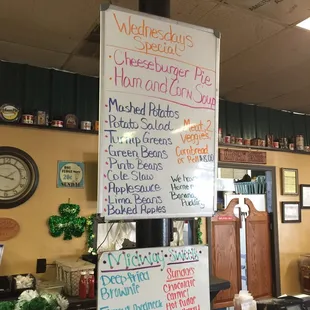 Wednesdays
Special
Cheeseburger Pie
Ham and Corn Soup
Mashed Potatos
Potato Salad
Turnip Greens
Green Beans
Pinto Beans
Cole Slaw
Applesauce
Lima Beans
Baked Apples
Meat 2
Veggies
Cornbread
or Rolls
We have
Home
Banana
Pudding
Midway
Deep Fried
Brownie
Sundaes
Chocolate
Caramel
Hot Fudge